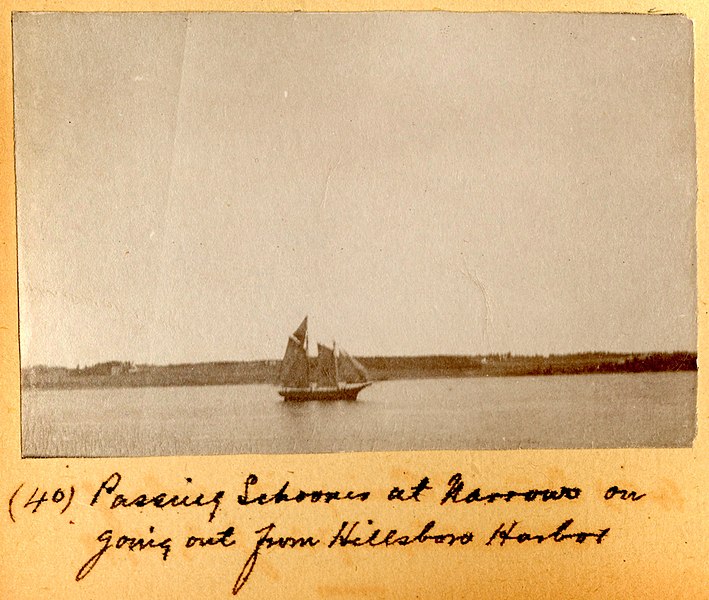 (40) Passing Schooner at Narrows on
going out from Hillsboro Harbor